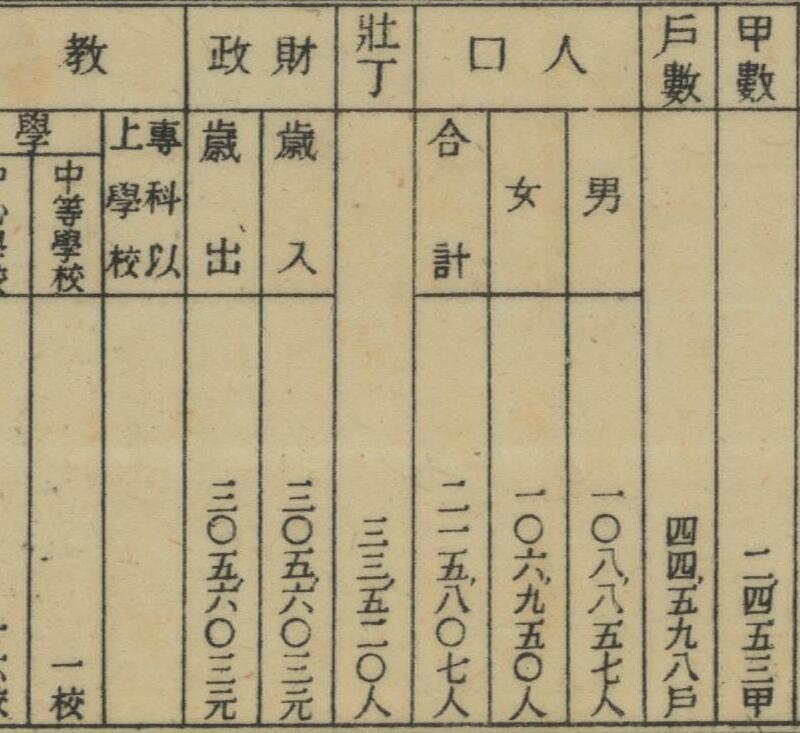 甲數
二,四五三甲
戶數
四四,五九八戶
人口
男
一〇八,八五七人
女
一〇六,九五〇人
合計
二一五,八〇七人
壯丁
三三,五二〇人
財政
歲入
三〇五,六〇三元
歲出
三〇五,六〇三元
教
專科以
上學校
學
中等學校
一校